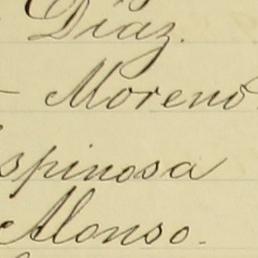 Díaz.
- Moreno
spinosa
Alonso.